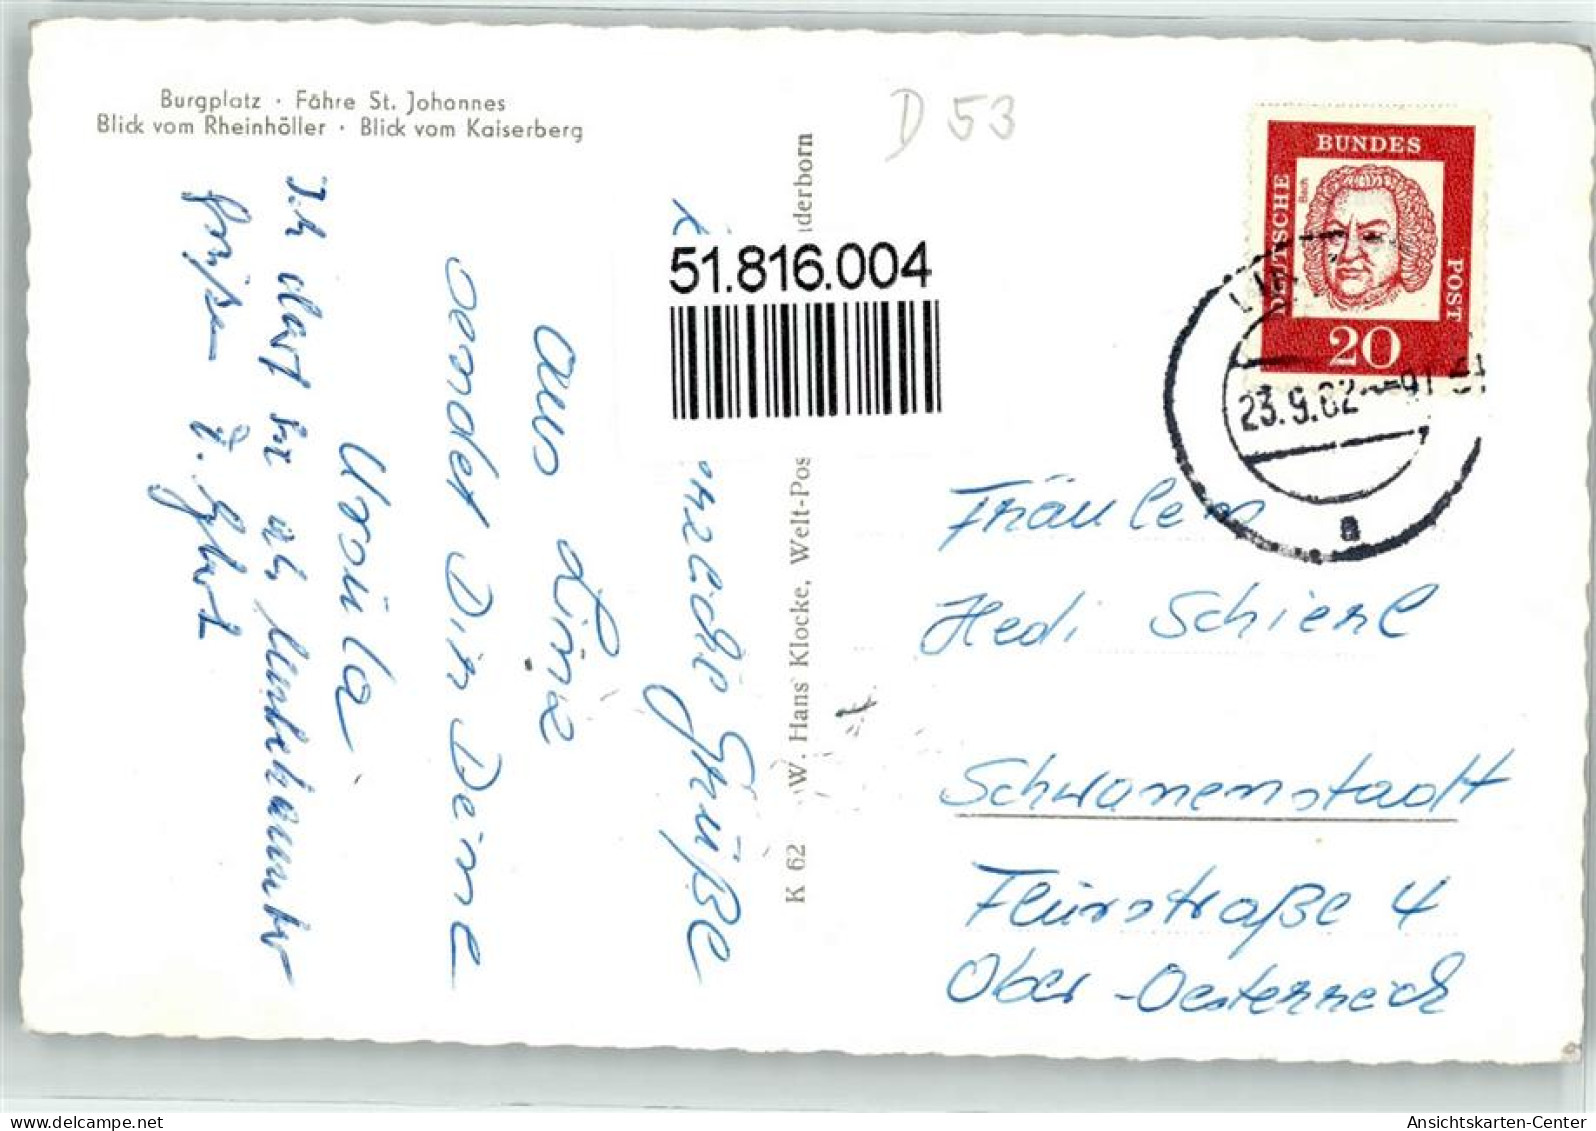 Burgplatz · Fähre St. Johannes
Blick vom Rheinhöller · Blick vom Kaiserberg
D 53
BUNDES
DEUTSCHE
POST
Bach
20
23.9.62
a
51.816.004
Grüße
aus Linz
sendet Dir Deine
Ursula
Ich darf Sie als Unbekannter
grüßen
K 62 W. Hans Klocke, Welt-Pos
derborn
Fräulein
Hedi Schierl
Schwanenstadt
Flurstraße 4
Ober-Oesterreich
www.delcampe.net
Ansichtskarten-Center